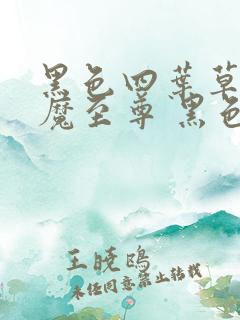 黑色四葉草
魔至尊 黑色
王曉鷗
未经同意禁止转载